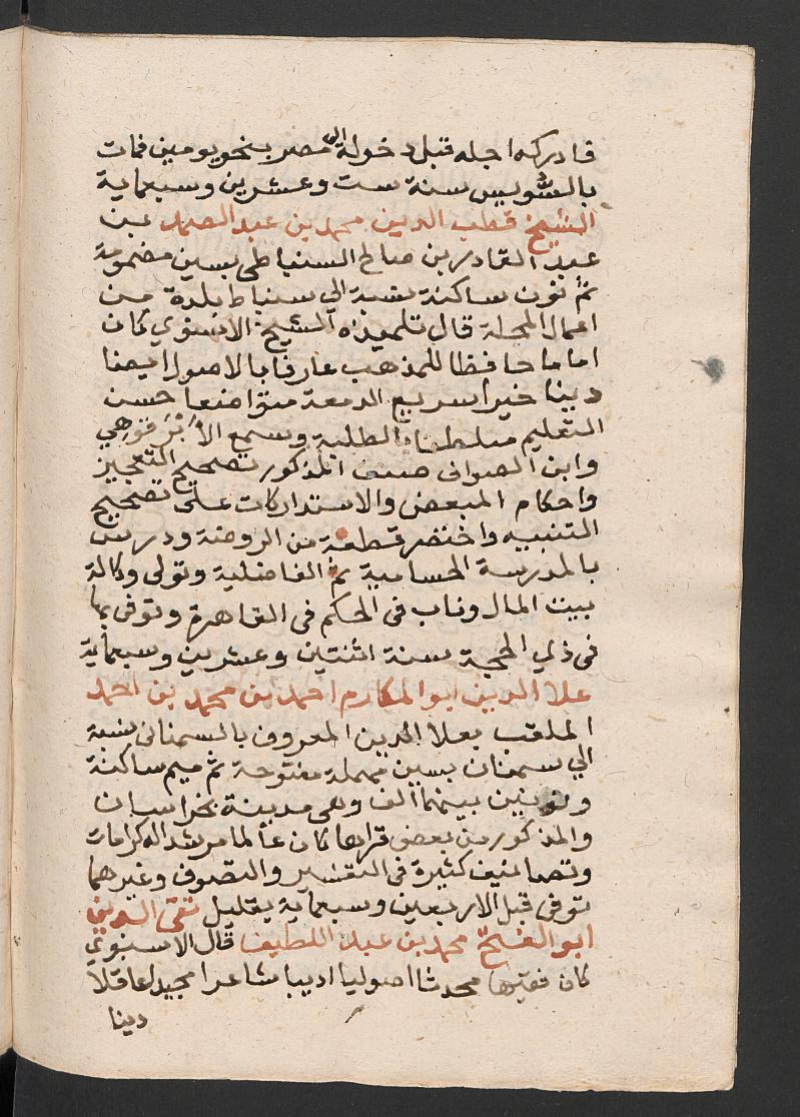 فادركه اجله قبل دخوله الى مصر بنحو يومين فمات
بالسويس سنة ست وعشرين وسبعماية
الشيخ قطب الدين محمد بن عبد الصمد بن
عبد القادر بن صالح السنباطي بسين مضمومة
ثم نون ساكنة نسبة الي سنباط بلدة من
اعمال المحلة قال تلميذه الشيخ الاسنوي كان
اماما حافظا للمذهب عارفا بالاصول ايضا
دينا خيرا سريع الدمعة متواضعا حسن
التعليم متلطفا بالطلبة وسمع الأبَرْقوهي
وابن الصواف صنف المذكور تصحيح التعجيز
واحكام المبعض والاستدراكات على تصحيح
التنبيه واختصر قطعة من الروضة ودرس
بالمدرسة الحسامية ثم الفاضلية وتولى وكالة
بيت المال وناب في الحكم في القاهرة وتوفى بها
في ذي الحجة سنة اثنتين وعشرين وسبعماية
علا الدين ابو المكارم احمد بن محمد بن احمد
الملقب بعلا الدين المعروف بالسمناني نسبة
الي سمنان بسين مهملة مفتوحة ثم ميم ساكنة
ونونين بينهما الف وهي مدينة بخراسان
والمذكور من بعض قراها كان عالما مرشدا له كرامات
وتصانيف كثيرة في التفسير والتصوف وغيرهما
توفي قبل الاربعين وسبعماية بقليل تقى الدين
ابو الفتح محمد بن عبد اللطيف قال الاسنوي
كان فقيها محدثا اصوليا اديبا شاعرا مجيدا عاقلا
دينا